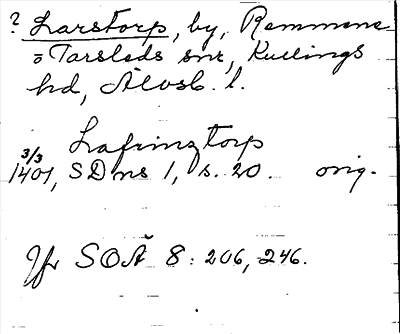 ? Larstorp, by, Remmene-
o Tarsleds snr, Kullings
hd, Älvsb. l.
Lafrinztorp
3/3
1401, SD ns 1, s. 20. orig.
Jfr SOÄ 8: 206, 246.